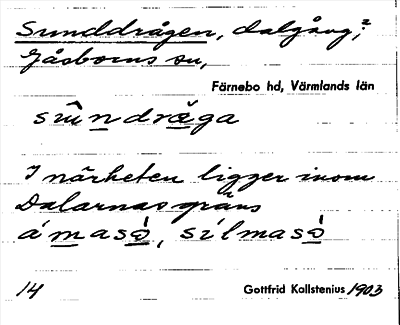 Sunddrågen, dalgång²;
Gåsborns sn,
Färnebo hd, Värmlands län
sûndrǎga
I närheten ligger inom
Dalarnas gräns
á masò, sílmasò
14 Gottfrid Kallstenius 1903